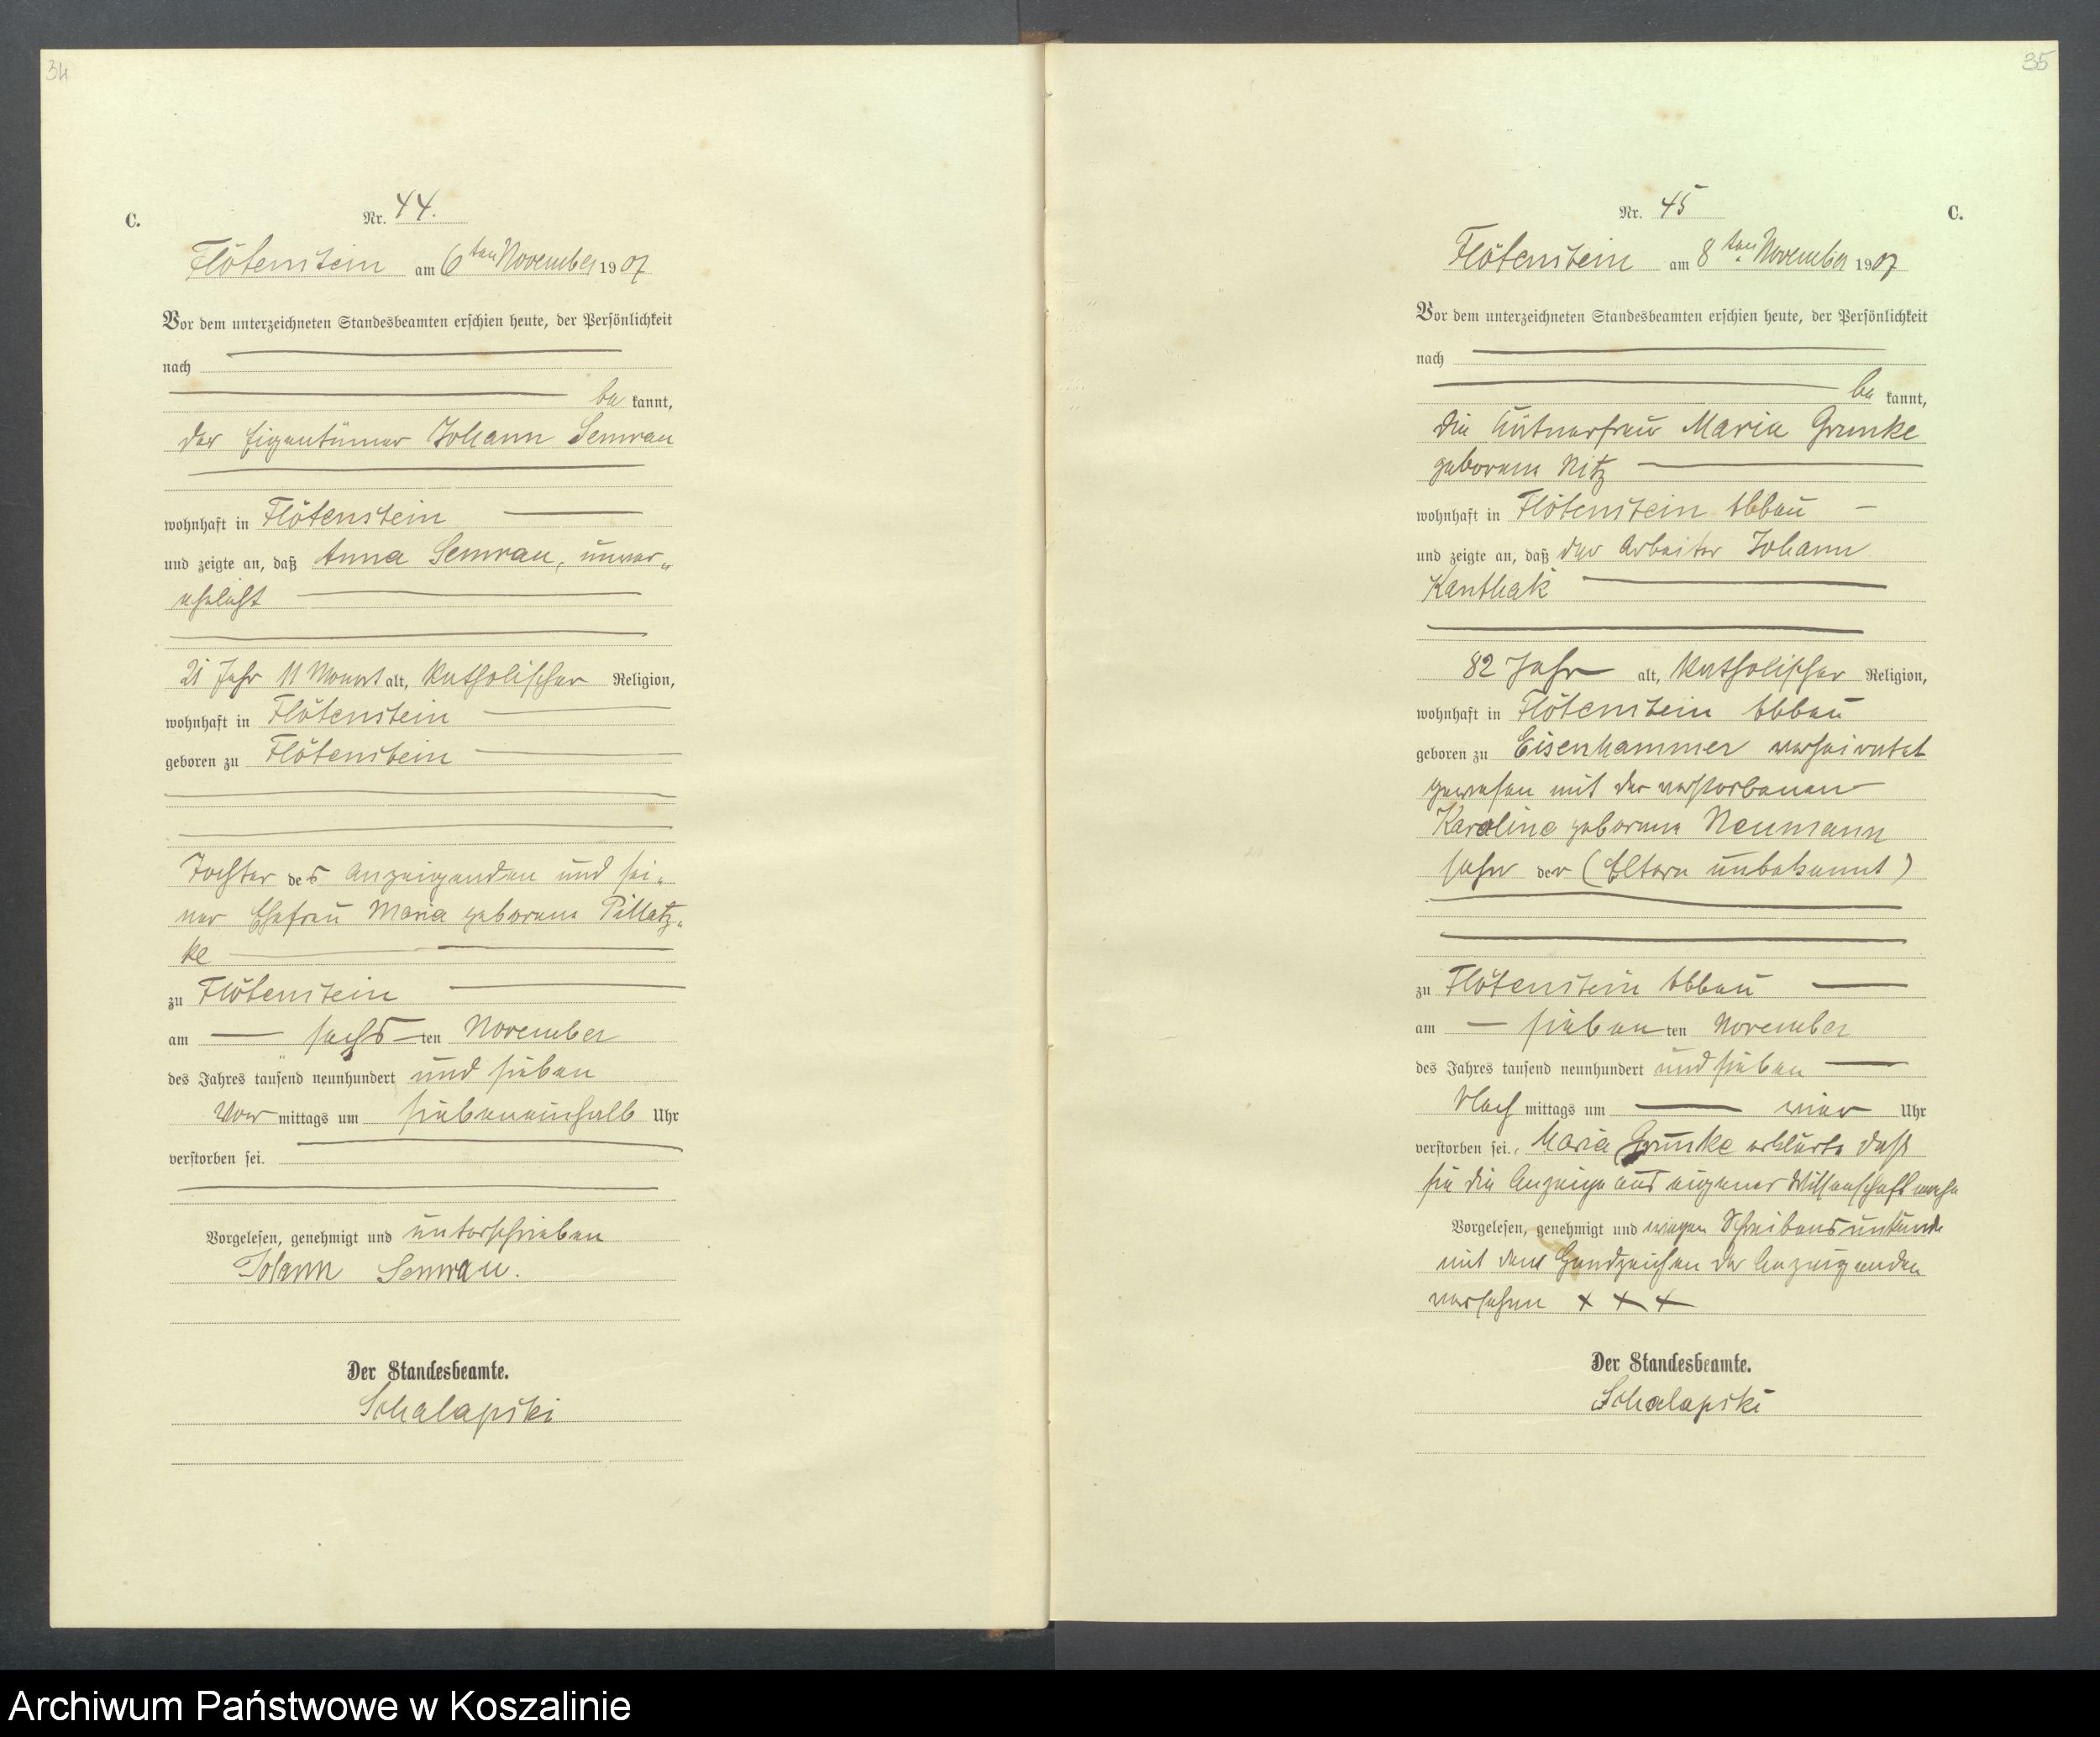 34
C.
Nr. 44.
Flötenstein am 6ten November 1907
Vor dem unterzeichneten Standesbeamten erschien heute, der Persönlichkeit
nach
be kannt,
der Eigentümer Johann Semrau
wohnhaft in Flötenstein
und zeigte an, daß Anna Semrau, unver-
ehelicht
21 Jahr 11 Monat alt, katholischer Religion,
wohnhaft in Flötenstein
geboren zu Flötenstein
Tochter des Anzeigenden und sei-
ner Ehefrau Maria geborene Pillatz-
ke
zu Flötenstein
am sechs ten November
des Jahres tausend neunhundert und sieben
Vor mittags um siebeneinhalb Uhr
verstorben sei.
Vorgelesen, genehmigt und unterschrieben
Johann Semrau.
Der Standesbeamte.
Schalapski
35
Nr. 45
C.
Flötenstein am 8ten November 1907
Vor dem unterzeichneten Standesbeamten erschien heute, der Persönlichkeit
nach
be kannt,
die Maria Grunke
geborene Nitz
wohnhaft in Flötenstein Abbau
und zeigte an, daß der Arbeiter Johann
Kanthak
82 Jahr alt, katholischer Religion,
wohnhaft in Flötenstein Abbau
geboren zu Eisenhammer verheiratet
gewesen mit der verstorbenen
Karoline geborene Neumann
Sohn der (Eltern unbekannt)
zu Flötenstein Abbau
am sieben ten November
des Jahres tausend neunhundert und sieben
Nach mittags um vier Uhr
verstorben sei. Maria Grunke erklärte daß
sie die Anzeige aus eigener Wissenschaft mache
Vorgelesen, genehmigt und wegen Schreibensunkunde
mit dem Handzeichen der Anzeigenden
versehen + + +
Der Standesbeamte.
Schalapski
Archiwum Państwowe w Koszalinie